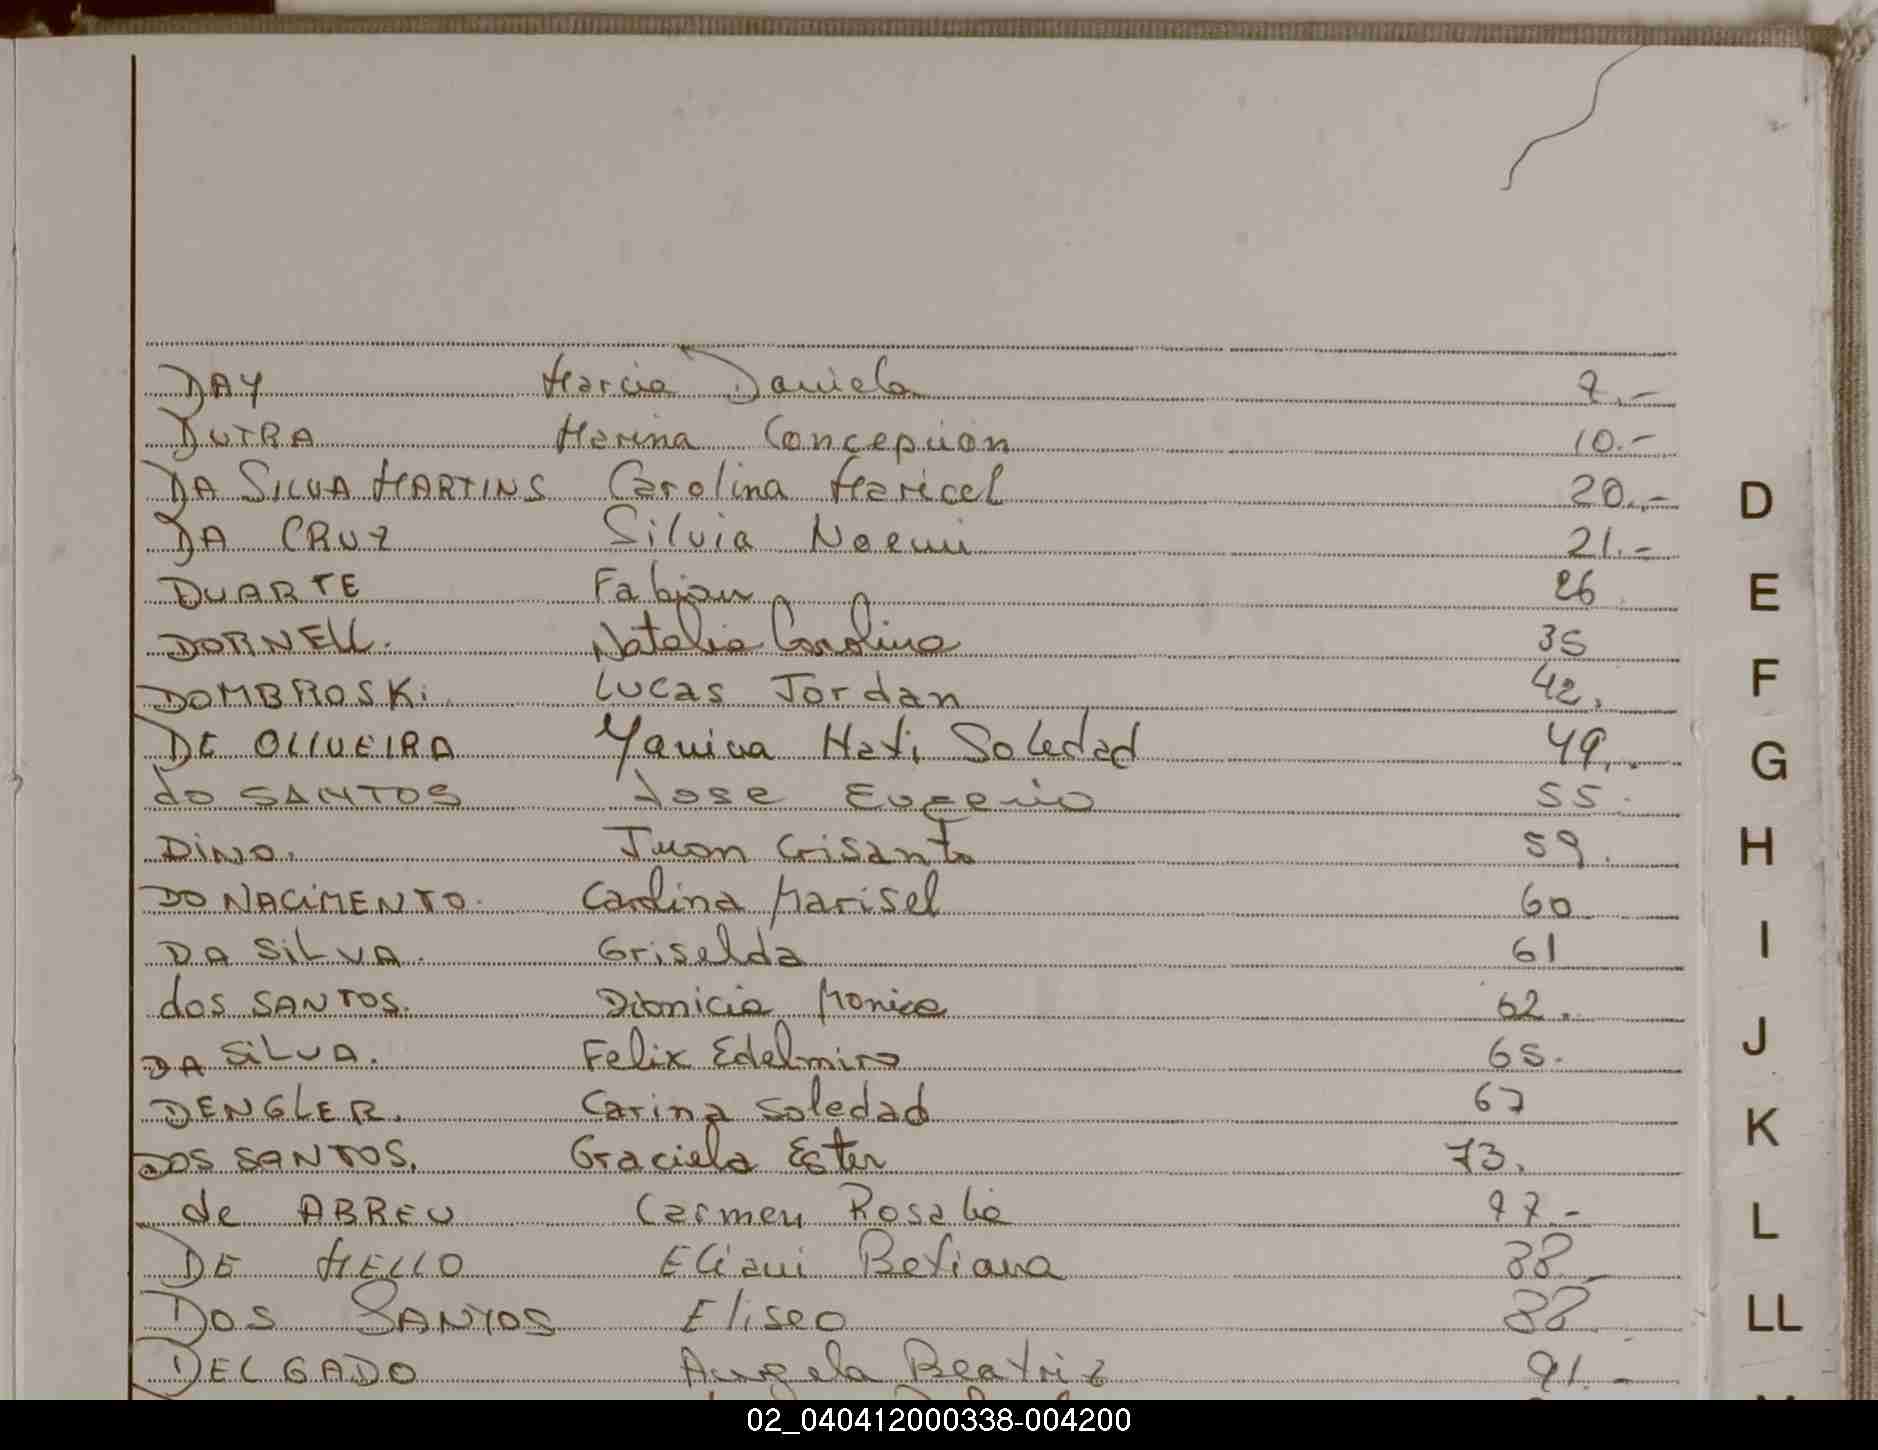 DAY Marcia Daniela 7.-
DUTRA Marina Concepcion 10.-
DA SILVA MARTINS Carolina Maricel 20.-
DA CRUZ Silvia Noemi 21.-
DUARTE Fabian 26
DORNELL. Natalia Carolina 35
DOMBROSKi. Lucas Jordan 42.
DE OLIVEIRA Yanina Mari Soledad 49.-
do SANTOS Jose Eugenio 55.
DiNO. Juan Crisanto 59.
DO NACiMENTO. Carolina Marisel 60
DA SiLVA. Griselda 61
dos SANTOS. Dionicia Monica 62.
DA SiLVA. Felix Edelmiro 65.
DENGLER. Carina Soledad 67
DOS SANTOS. Graciela Ester 73.
de ABREU Carmen Rosalia 77.-
DE MELLO Eliani Betiana 88.-
DOS SANTOS Eliseo 88
DELGADO Angela Beatriz 91.-
D
E
F
G
H
I
J
K
L
LL
02_040412000338-004200